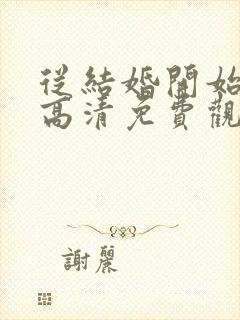 從結婚開始
高清免費觀
謝麗